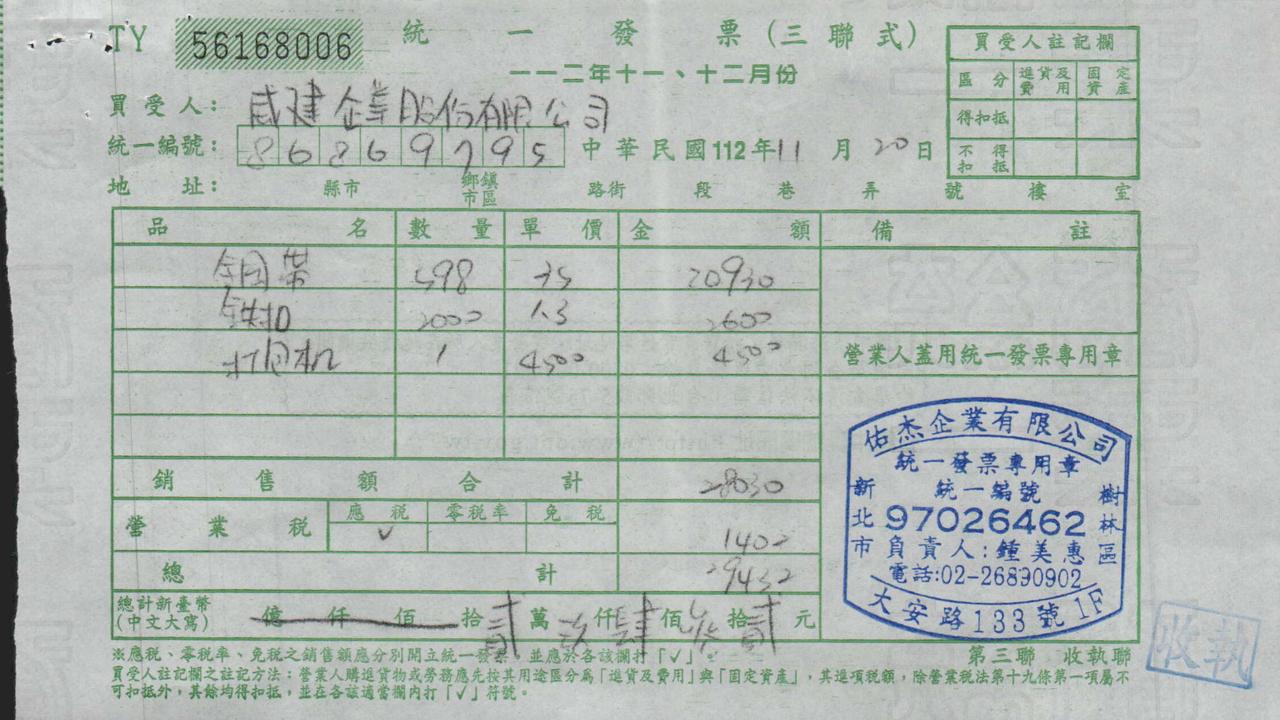 TY 56168006 統一發票(三聯式)
一一二年十一、十二月份
買受人註記欄
區分 進貨及費用 固定資產
得扣抵
不得扣抵
買受人: 威建企業股份有限公司
統一編號: 86869795 中華民國112年11月20日
地址: 縣市 鄉鎮市區 路街 段 巷 弄 號 樓 室
品名 數量 單價 金額 備註
鋼帶 598 35 20930
鉄扣 2000 1.3 2600
打包机 1 4500 4500
營業人蓋用統一發票專用章
銷售額合計 28030
營業稅 應稅 零稅率 免稅
✓ 1402
總計 29432
總計新臺幣
(中文大寫) 億仟佰拾貳萬玖仟肆佰參拾貳元
佑杰企業有限公司
統一發票專用章
統一編號
97026462
負責人:鍾美惠
電話:02-26890902
新北市 樹林區
大安路133號1F
※應稅、零稅率、免稅之銷售額應分別開立統一發票,並應於各該欄打「✓」。
第三聯 收執聯
買受人註記欄之註記方法:營業人購進貨物或勞務應先按其用途區分為「進貨及費用」與「固定資產」,其進項稅額,除營業稅法第十九條第一項屬不
可扣抵外,其餘均得扣抵,並在各該適當欄內打「✓」符號。
收執